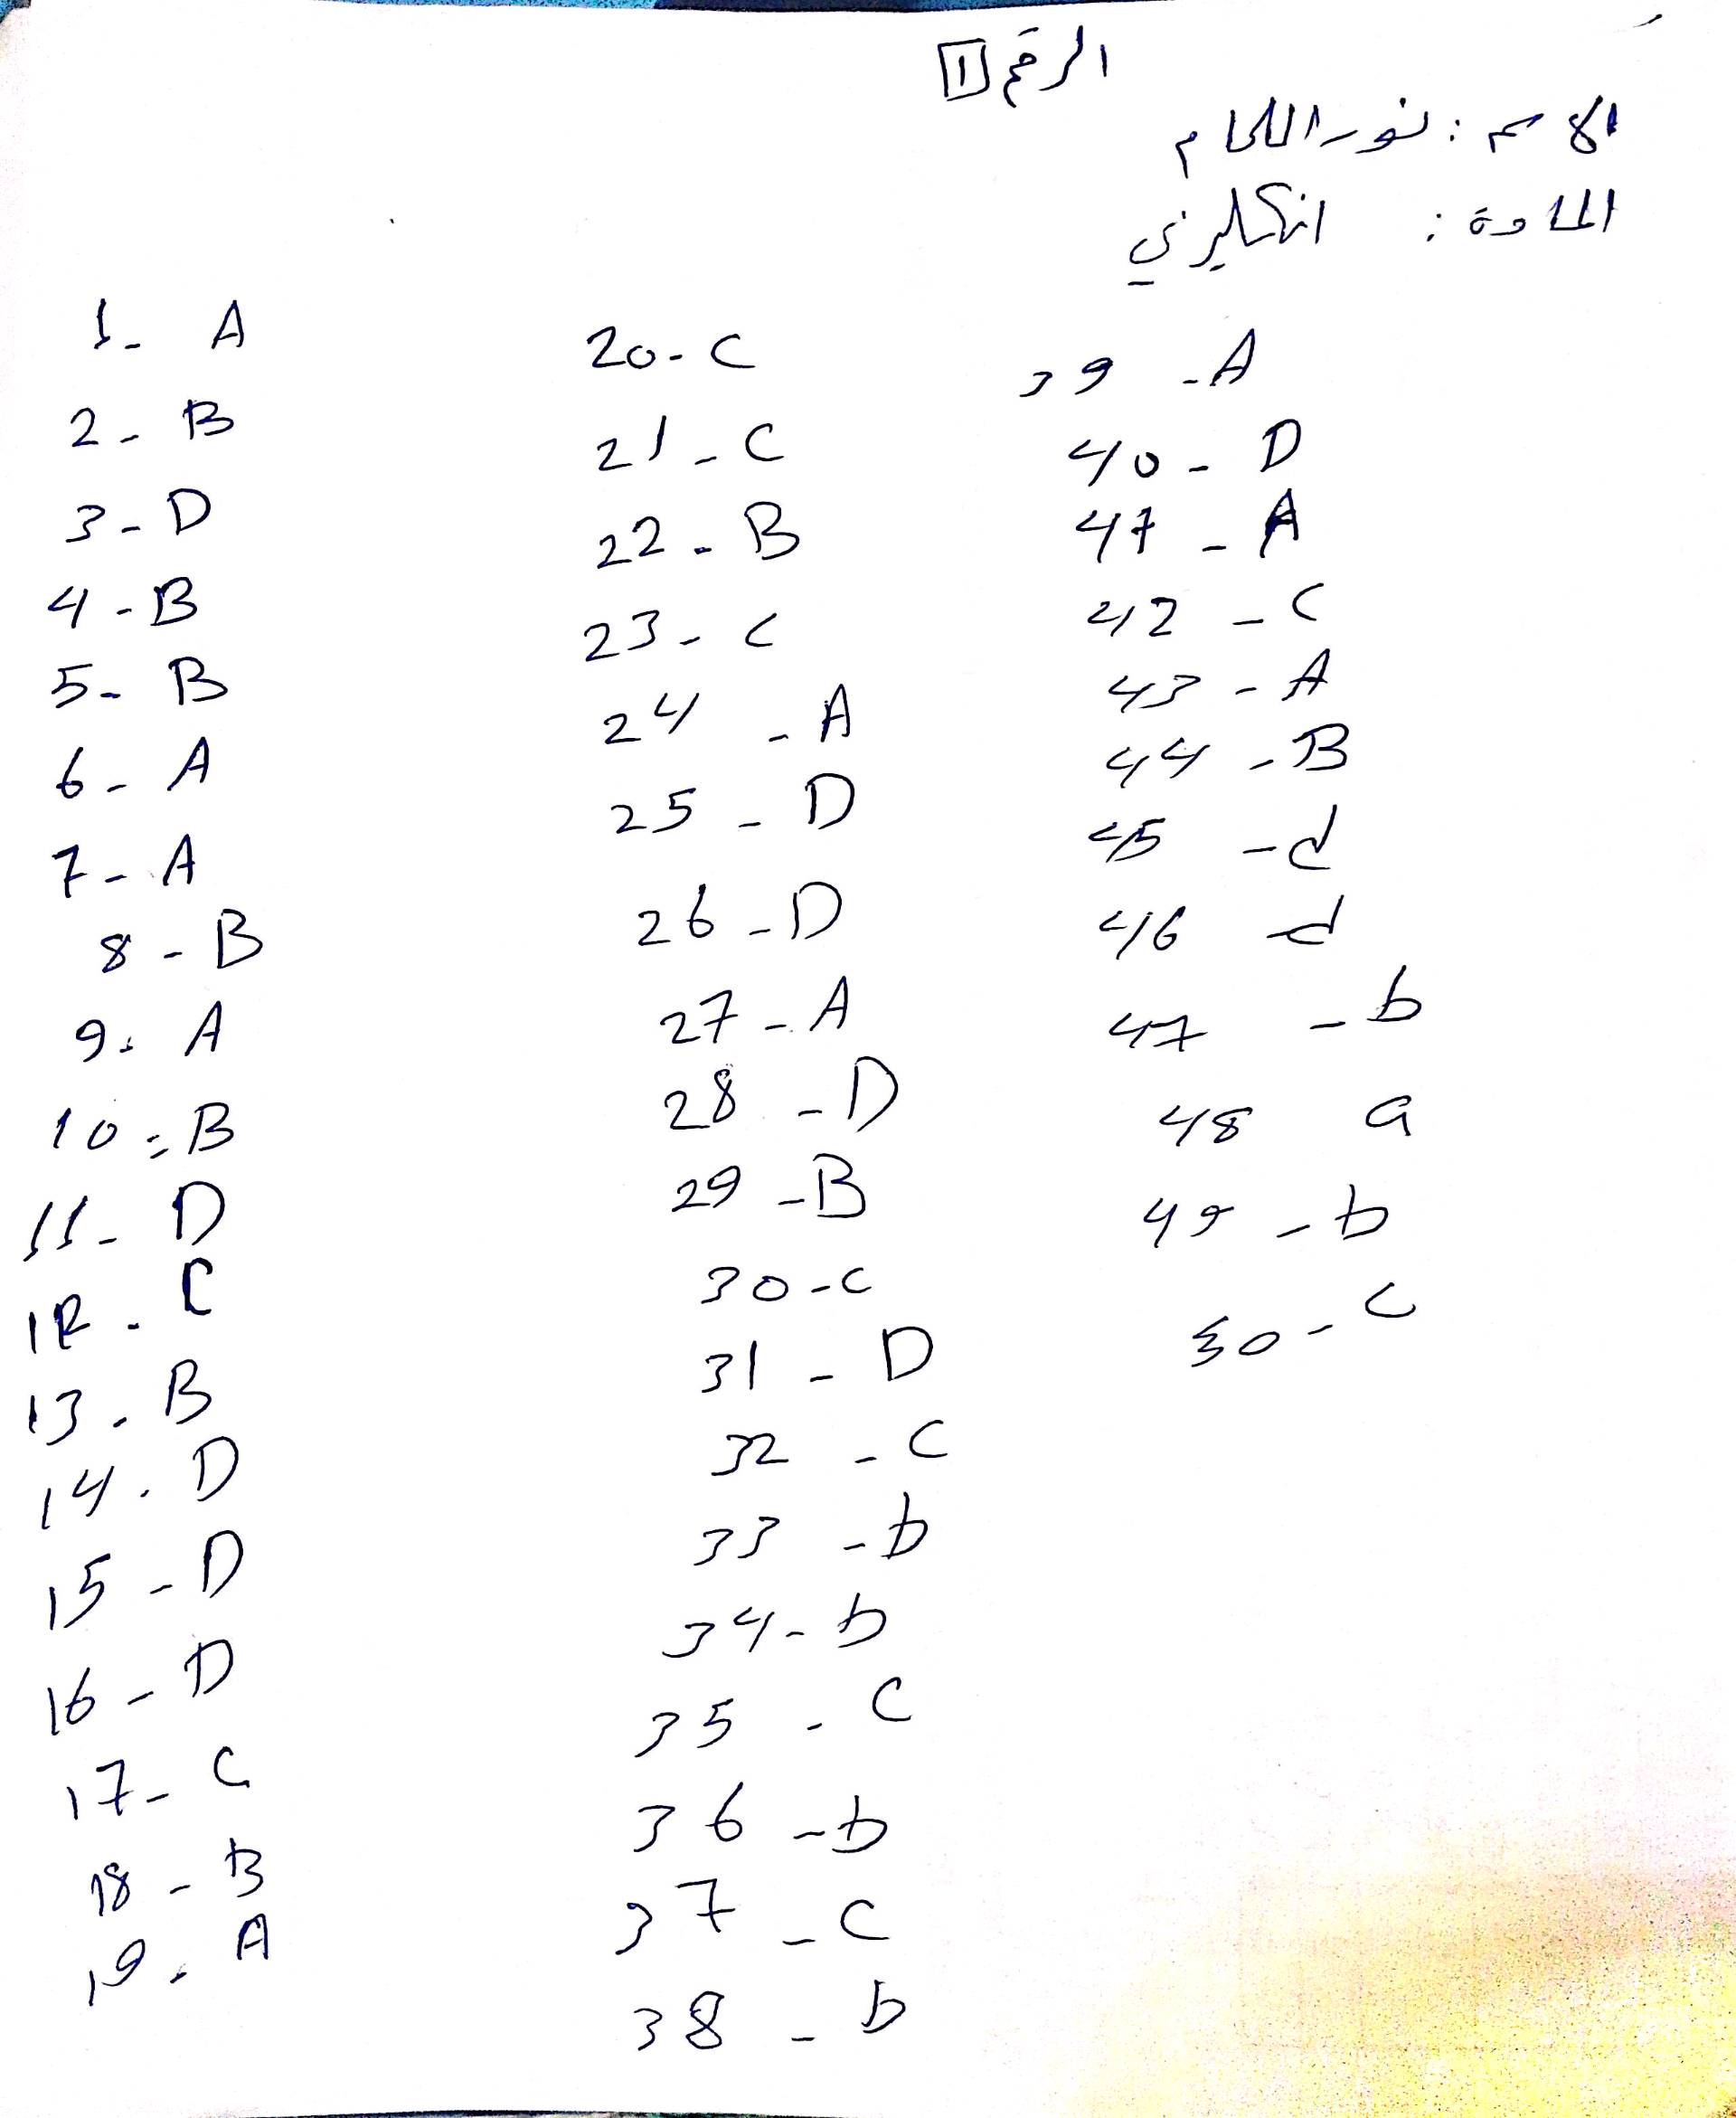 الرقم 1
الاسم : نور اللحام
المادة : انكليزي
1- A
2- B
3- D
4- B
5- B
6- A
7- A
8- B
9- A
10- B
11- D
12- C
13- B
14- D
15- D
16- D
17- C
18- B
19- A
20- C
21- C
22- B
23- C
24- A
25- D
26- D
27- A
28- D
29- B
30- C
31- D
32- C
33- b
34- b
35- C
36- b
37- C
38- b
39- A
40- D
41- A
42- C
43- A
44- B
45- d
46- d
47- b
48 a
49- b
50- C